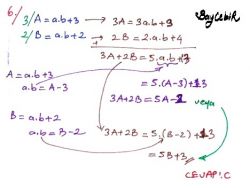 6/ 3/ A=a.b+3 → 3A=3a.b+9
BayCebiR
2/ B=a.b+2 → 2B=2.a.b+4
+
3A+2B = 5.a.b+13
A=a.b+3
a.b=A-3
= 5.(A-3)+13
3A+2B=5A-2
veya
B=a.b+2
a.b=B-2
3A+2B=5.(B-2)+13
=5B+3
CEVAP:C